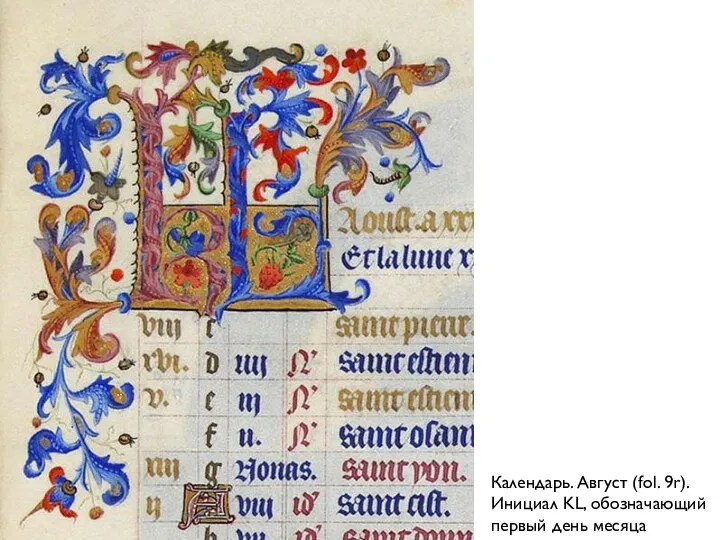 KL
Aoust a xxx
Et la lune x
viii c saint pierre.
xvi. d iiij N' saint estien
v. e iij N' saint estiene
f ii. N' saint osanne
xiij g Nonas. saint yon.
ij A viij id' saint cist.
b vij id' saint donn
Календарь. Август (fol. 9r).
Инициал KL, обозначающий
первый день месяца